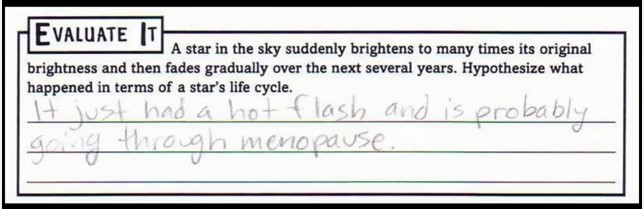 EVALUATE IT
A star in the sky suddenly brightens to many times its original
brightness and then fades gradually over the next several years. Hypothesize what
happened in terms of a star's life cycle.
It just had a hot flash and is probably
going through menopause.